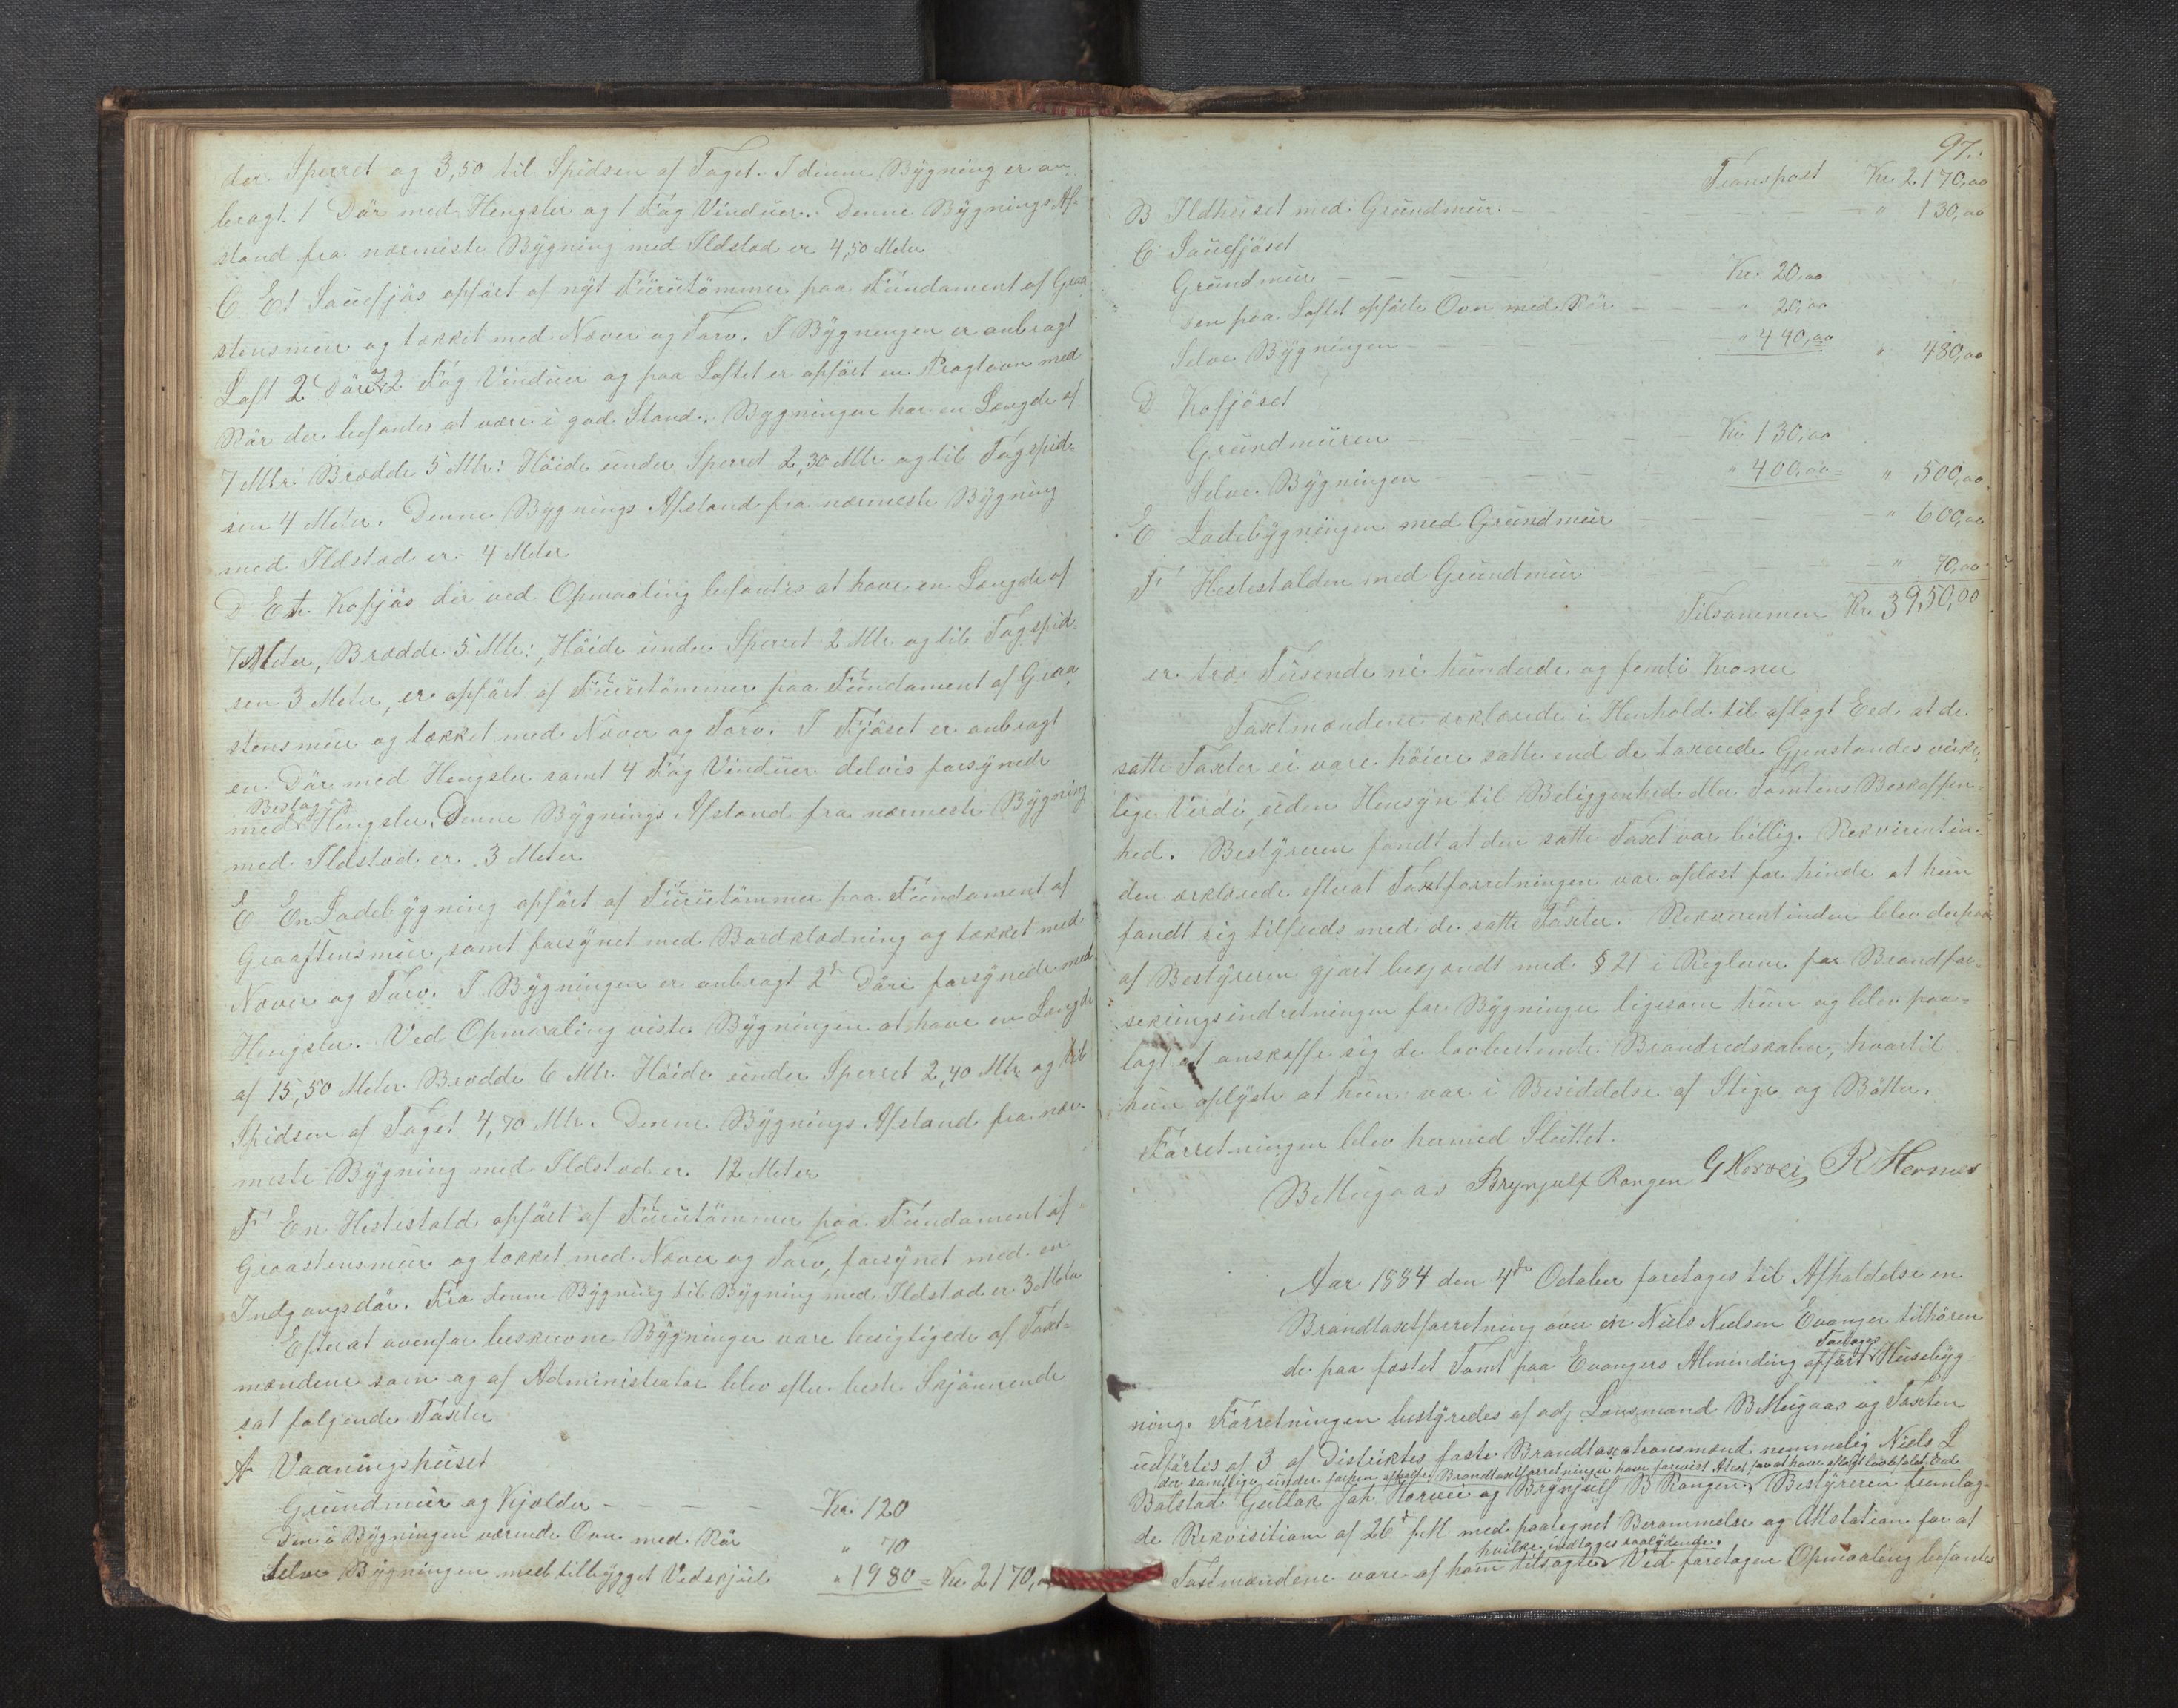 der Sperret og 3,50 til Spidsen af Taget. I denne Bygning er an
bragt 1 Dör med Hengsler og 1 Fag Vinduer. Denne Bygnings Af-
stand fra nærmeste Bygning med Ildsted er 4,50 Meter
C Et Sauefjös opfört af nyt Furutömmer paa Fundament af Graa
stensmur og tækket med Næver og Torv. I Bygningen er anbragt
Loft 2 Döre og 2 Fag Vinduer og paa Loftet er opfört en Pragtovn med
Rör der befantes at være i god Stand. Bygningen har en Længde af
7 Mtr: Bredde 5 Mtr: Höide under Sperret 2,30 Mtr og til Tagspid-
sen 4 Meter. Denne Bygnings Afstand fra nærmeste Bygning
med Ildsted er 4 Meter
D Et Kofjös der ved Opmaaling befantes at have en Længde af
7 Meter, Bredde 5 Mtr:, Höide under Sperret 2 Mtr og til Tagspid-
sen 3 Meter, er opfört af Furutömmer paa Fundament af Graa
stensmur og tækket med Næver og Torv. I Fjöset er anbragt
en Dör med Hengsler samt 4 Fag Vinduer delvis forsynede
Beslag og
med Hengsler. Denne Bygnings Afstand fra nærmeste Bygning
med Ildsted er 3 Meter
E En Ladebygning opfört af Furutömmer paa Fundament af
Graastensmur, samt forsynet med Bordklædning og tækket med
Næver og Torv. I Bygningen er anbragt 2 Döre forsynede med
Hengsler. Ved Opmaaling viste Bygningen at have en Længde
af 15,50 Meter Bredde 6 Mtr. Höide under Sperret 2,40 Mtr og til
Spidsen af Taget 4,70 Mtr. Denne Bygnings Afstand fra nær-
meste Bygning med Ildsted er 12 Meter
F En Hestestald opfört af Furutömmer paa Fundament af
Graastensmur og tækket med Næver og Torv, forsynet med en
Indgangsdör. Fra denne Bygning til Bygning med Ildsted er 3 Meter
Efterat ovenfor beskrevne Bygninger vare besigtigede af Taxt-
mændene som og af Administrator blev efter beste Skjönnende
sat følgende Taxter
A Vaaningshuset
Grundmur og Kjælder - - - - Kr. 120
Den i Bygningen værende Ovn med Rör " 70
Selve Bygningen med tilbygget Vedskjul " 1980 = Kr. 2170,00
97.
Transport Kr. 2170,00
B Ildhuset med Grundmur - - - " 130,00
C Sauefjöset
Grundmur - - - - Kr. 20,00
Den paa Loftet opförte Ovn med Rör - " 20,00
Selve Bygningen - - - " 440,00 " 480,00
D Kofjöset
Grundmuren - - - Kr. 130,00
Selve Bygningen - - - " 400,00 = " 500,00
E Ladebygningen med Grundmur - - " 600,00
F Hestestalden med Grundmur - - " 70,00
Tilsammen Kr. 3950,00
er tre Tusende ni hundrede og femti Kroner
Taxtmændene erklærede i Henhold til aflagt Eed at de
satte Taxter ei vare höiere satte end de taxerede Gjenstandes virke-
lige Værdi, uden Hensyn til Beliggenhed eller Tomtens Beskaffen-
hed. Bestyreren fandt at den satte Taxt var billig. Rekvirentin-
den erklærede efterat Taxtforretningen var oplæst for hende at hun
fandt sig tilfreds med de satte Taxter. Rekvirentinden blev derpaa
af Bestyreren gjort bekjendt med § 21 i Reglerne for Brandfor-
sikringsindretningen for Bygninger ligesom hun og blev paa-
lagt at anskaffe sig de lovbestemte Brandredskaber, hvortil
hun oplyste at hun var i Besiddelse af Stige og Bötter.
Forretningen blev hermed Sluttet.
B Mugaas Brynjulf Rongen G Horvei R Hernes
Aar 1884 den 4de October foretages til Afholdelse en
Brandtaxtforretning over en Niels Nielsen Evanger tilhören
de paa fæstet Tomt paa Evangers Alminding opfört Toetages Husebyg
ning. Forretningen bestyredes af adj Lensmand B Mugaas og Taxten
udförtes af 3 af Distriktes faste Brandtaxationsmænd nemmelig Niels L
der samtlige under forhen afholdte Brandtaxtforretninger have forevist Attest for at have aflagt lovbefalet Eed
Bolstad Gullak Joh Horvei og Brynjulf B Rongen. Bestyreren fremlag-
de Rekvisition af 26 f.M. med paategnet Berammelse og Attstation for at
hvilke indlægges saalydende.
Taxtmændene vare af ham tilsagte Ved foretagen Opmaaling befantes